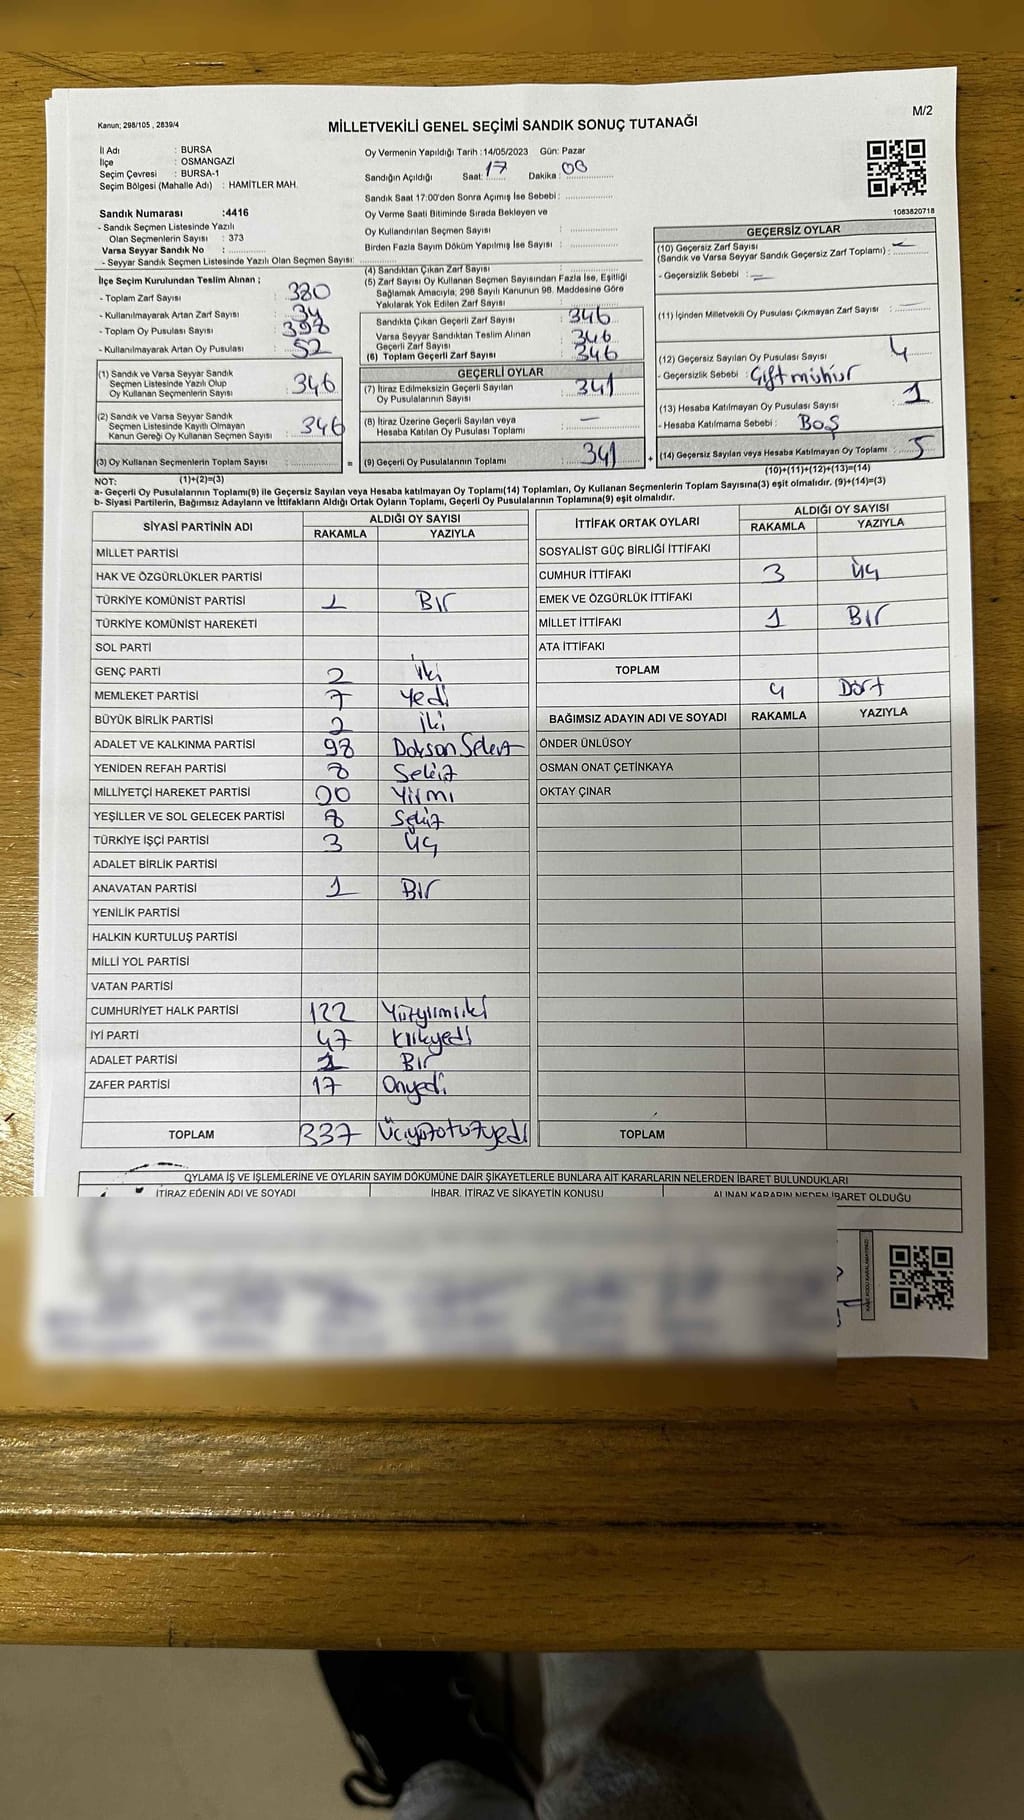 Kanun; 298/105 , 2839/4
MİLLETVEKİLİ GENEL SEÇİMİ SANDIK SONUÇ TUTANAĞI
M/2
İl Adı : BURSA
İlçe : OSMANGAZİ
Seçim Çevresi : BURSA-1
Seçim Bölgesi (Mahalle Adı) : HAMİTLER MAH.
Oy Vermenin Yapıldığı Tarih :14/05/2023 Gün: Pazar
Sandığın Açıldığı Saat: 17 Dakika : 00
Sandık Saat 17:00'den Sonra Açımış İse Sebebi :
Oy Verme Saati Bitiminde Sırada Bekleyen ve
Oy Kullandırılan Seçmen Sayısı :
Birden Fazla Sayım Döküm Yapılmış İse Sayısı :
1083820718
Sandık Numarası :4416
- Sandık Seçmen Listesinde Yazılı
Olan Seçmenlerin Sayısı : 373
Varsa Seyyar Sandık No :
- Seyyar Sandık Seçmen Listesinde Yazılı Olan Seçmen Sayısı:
İlçe Seçim Kurulundan Teslim Alınan ;
- Toplam Zarf Sayısı : 380
- Kullanılmayarak Artan Zarf Sayısı : 34
- Toplam Oy Pusulası Sayısı : 398
- Kullanılmayarak Artan Oy Pusulası : 52
(1) Sandık ve Varsa Seyyar Sandık
Seçmen Listesinde Yazılı Olup
Oy Kullanan Seçmenlerin Sayısı : 346
(2) Sandık ve Varsa Seyyar Sandık
Seçmen Listesinde Kayıtlı Olmayan
Kanun Gereği Oy Kullanan Seçmen Sayısı : 346
(3) Oy Kullanan Seçmenlerin Toplam Sayısı :
(4) Sandıktan Çıkan Zarf Sayısı :
(5) Zarf Sayısı Oy Kullanan Seçmen Sayısından Fazla İse, Eşitliği
Sağlamak Amacıyla, 298 Sayılı Kanunun 98. Maddesine Göre
Yakılarak Yok Edilen Zarf Sayısı :
Sandıkta Çıkan Geçerli Zarf Sayısı : 346
Varsa Seyyar Sandıktan Teslim Alınan
Geçerli Zarf Sayısı : 346
(6) Toplam Geçerli Zarf Sayısı : 346
GEÇERLİ OYLAR
(7) İtiraz Edilmeksizin Geçerli Sayılan
Oy Pusulalarının Sayısı : 341
(8) İtiraz Üzerine Geçerli Sayılan veya
Hesaba Katılan Oy Pusulası Toplamı : —
= (9) Geçerli Oy Pusulalarının Toplamı : 341 +
GEÇERSİZ OYLAR
(10) Geçersiz Zarf Sayısı
(Sandık ve Varsa Seyyar Sandık Geçersiz Zarf Toplamı) : —
- Geçersizlik Sebebi : —
(11) İçinden Milletvekili Oy Pusulası Çıkmayan Zarf Sayısı : —
(12) Geçersiz Sayılan Oy Pusulası Sayısı : 4
- Geçersizlik Sebebi : Çift mühür
(13) Hesaba Katılmayan Oy Pusulası Sayısı : 1
- Hesaba Katılmama Sebebi : BOŞ
(14) Geçersiz Sayılan veya Hesaba Katılmayan Oy Toplamı : 5
(10)+(11)+(12)+(13)=(14)
NOT: (1)+(2)=(3)
a- Geçerli Oy Pusulalarının Toplamı(9) ile Geçersiz Sayılan veya Hesaba katılmayan Oy Toplamı(14) Toplamları, Oy Kullanan Seçmenlerin Toplam Sayısına(3) eşit olmalıdır. (9)+(14)=(3)
b- Siyasi Partilerin, Bağımsız Adayların ve İttifakların Aldığı Ortak Oyların Toplamı, Geçerli Oy Pusulalarının Toplamına(9) eşit olmalıdır.
SİYASİ PARTİNİN ADI ALDIĞI OY SAYISI
RAKAMLA YAZIYLA
MİLLET PARTİSİ
HAK VE ÖZGÜRLÜKLER PARTİSİ
TÜRKİYE KOMÜNİST PARTİSİ 1 BIR
TÜRKİYE KOMÜNİST HAREKETİ
SOL PARTİ
GENÇ PARTİ 2 iki
MEMLEKET PARTİSİ 7 Yedi
BÜYÜK BİRLİK PARTİSİ 2 iki
ADALET VE KALKINMA PARTİSİ 98 Doksan Sekiz
YENİDEN REFAH PARTİSİ 8 Sekiz
MİLLİYETÇİ HAREKET PARTİSİ 20 Yirmi
YEŞİLLER VE SOL GELECEK PARTİSİ 8 Sekiz
TÜRKİYE İŞÇİ PARTİSİ 3 Üç
ADALET BİRLİK PARTİSİ
ANAVATAN PARTİSİ 1 BIR
YENİLİK PARTİSİ
HALKIN KURTULUŞ PARTİSİ
MİLLİ YOL PARTİSİ
VATAN PARTİSİ
CUMHURİYET HALK PARTİSİ 122 Yüzyirmiiki
İYİ PARTİ 47 Kırkyedi
ADALET PARTİSİ 1 BIR
ZAFER PARTİSİ 17 Onyedi
TOPLAM 337 Üçyüzotuzyedi
İTTİFAK ORTAK OYLARI ALDIĞI OY SAYISI
RAKAMLA YAZIYLA
SOSYALİST GÜÇ BİRLİĞİ İTTİFAKI
CUMHUR İTTİFAKI 3 Üç
EMEK VE ÖZGÜRLÜK İTTİFAKI
MİLLET İTTİFAKI 1 BIR
ATA İTTİFAKI
TOPLAM
4 Dört
BAĞIMSIZ ADAYIN ADI VE SOYADI RAKAMLA YAZIYLA
ÖNDER ÜNLÜSOY
OSMAN ONAT ÇETİNKAYA
OKTAY ÇINAR
TOPLAM
OYLAMA İŞ VE İŞLEMLERİNE VE OYLARIN SAYIM DÖKÜMÜNE DAİR ŞİKAYETLERLE BUNLARA AİT KARARLARIN NELERDEN İBARET BULUNDUKLARI
İTİRAZ EDENİN ADI VE SOYADI İHBAR, İTİRAZ VE ŞİKAYETİN KONUSU ALINAN KARARIN NEDEN İBARET OLDUĞU